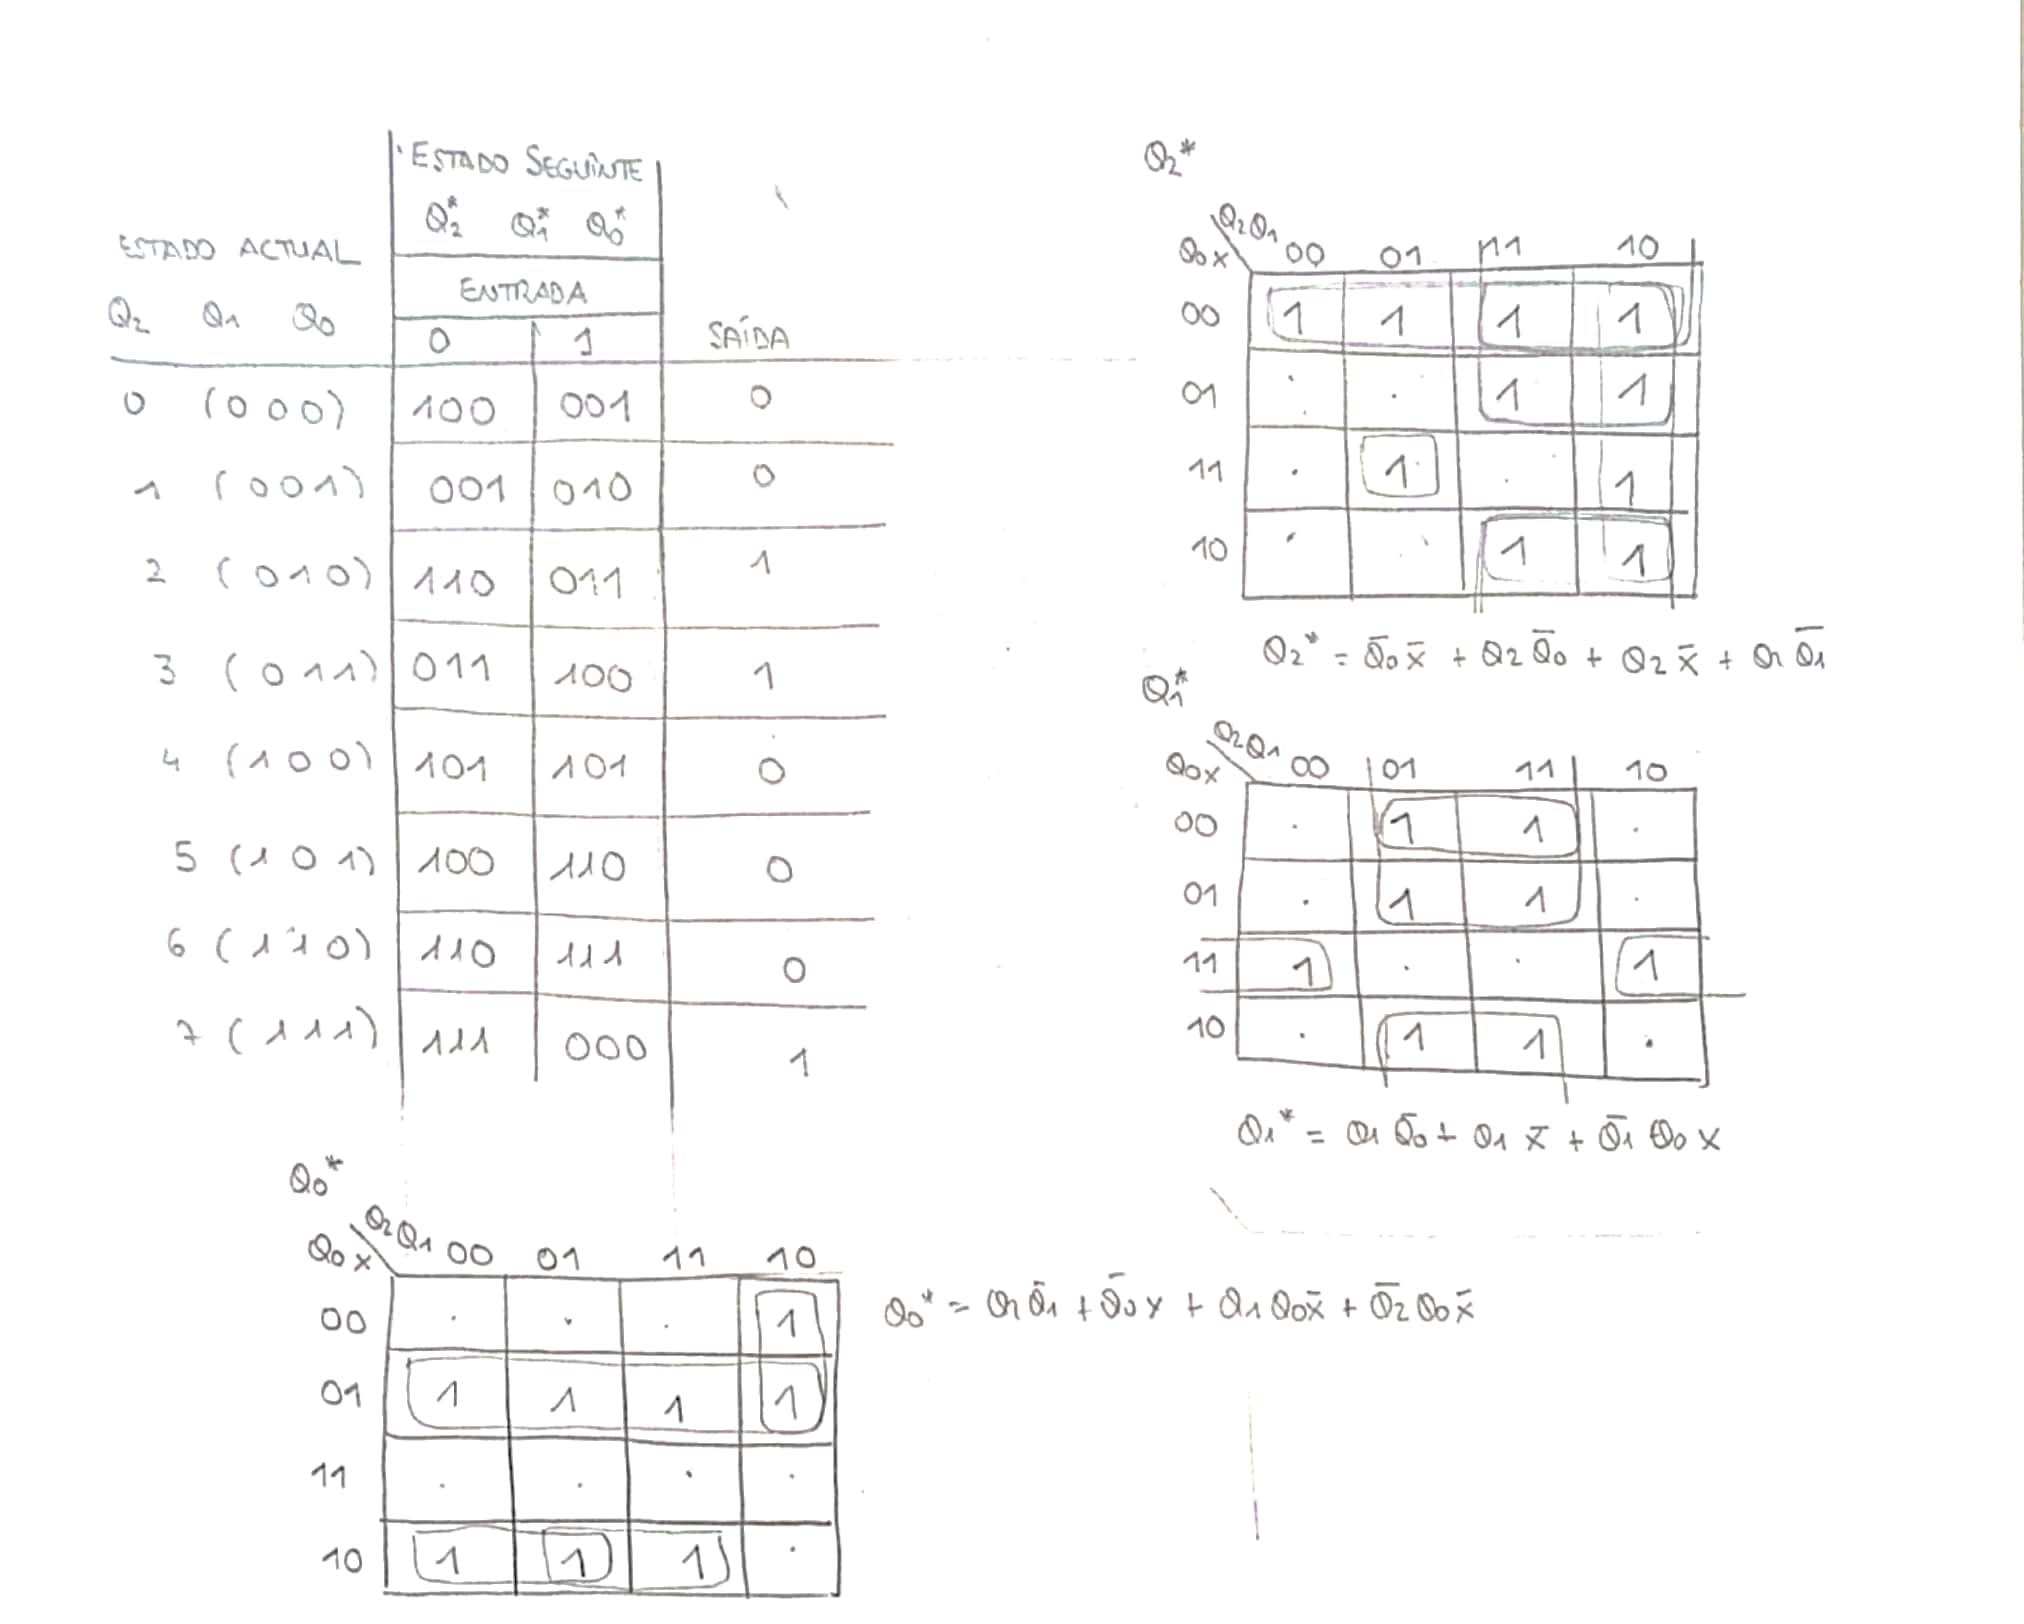 ESTADO SEGUINTE
Q2* Q1* Q0*
ESTADO ACTUAL
ENTRADA
Q2 Q1 Q0
0 1 SAÍDA
0 (000) 100 001 0
1 (001) 001 010 0
2 (010) 110 011 1
3 (011) 011 100 1
4 (100) 101 101 0
5 (101) 100 110 0
6 (110) 110 111 0
7 (111) 111 000 1
Q2*
Q2Q1
Q0x 00 01 11 10
00 1 1 1 1
01 . . 1 1
11 . 1 . 1
10 . . 1 1
Q2* = Q̄0 x̄ + Q2 Q̄0 + Q2 x̄ + Q2 Q̄1
Q1*
Q2Q1
Q0x 00 01 11 10
00 . 1 1 .
01 . 1 1 .
11 1 . . 1
10 . 1 1 .
Q1* = Q1 Q̄0 + Q1 x̄ + Q̄1 Q0 x
Q0*
Q2Q1
Q0x 00 01 11 10
00 . . . 1
01 1 1 1 1
11 . . . .
10 1 1 1 .
Q0* = Q2 Q̄1 + Q̄0 x + Q1 Q0 x̄ + Q̄2 Q0 x̄